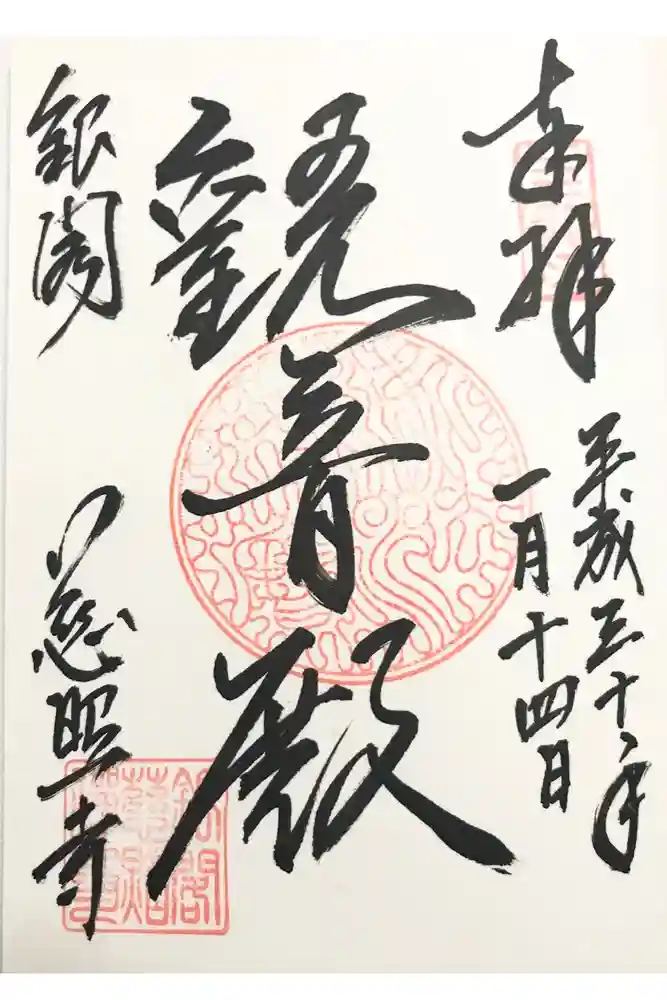 奉拝
平成三十年
一月十四日
観音殿
銀閣
慈照寺